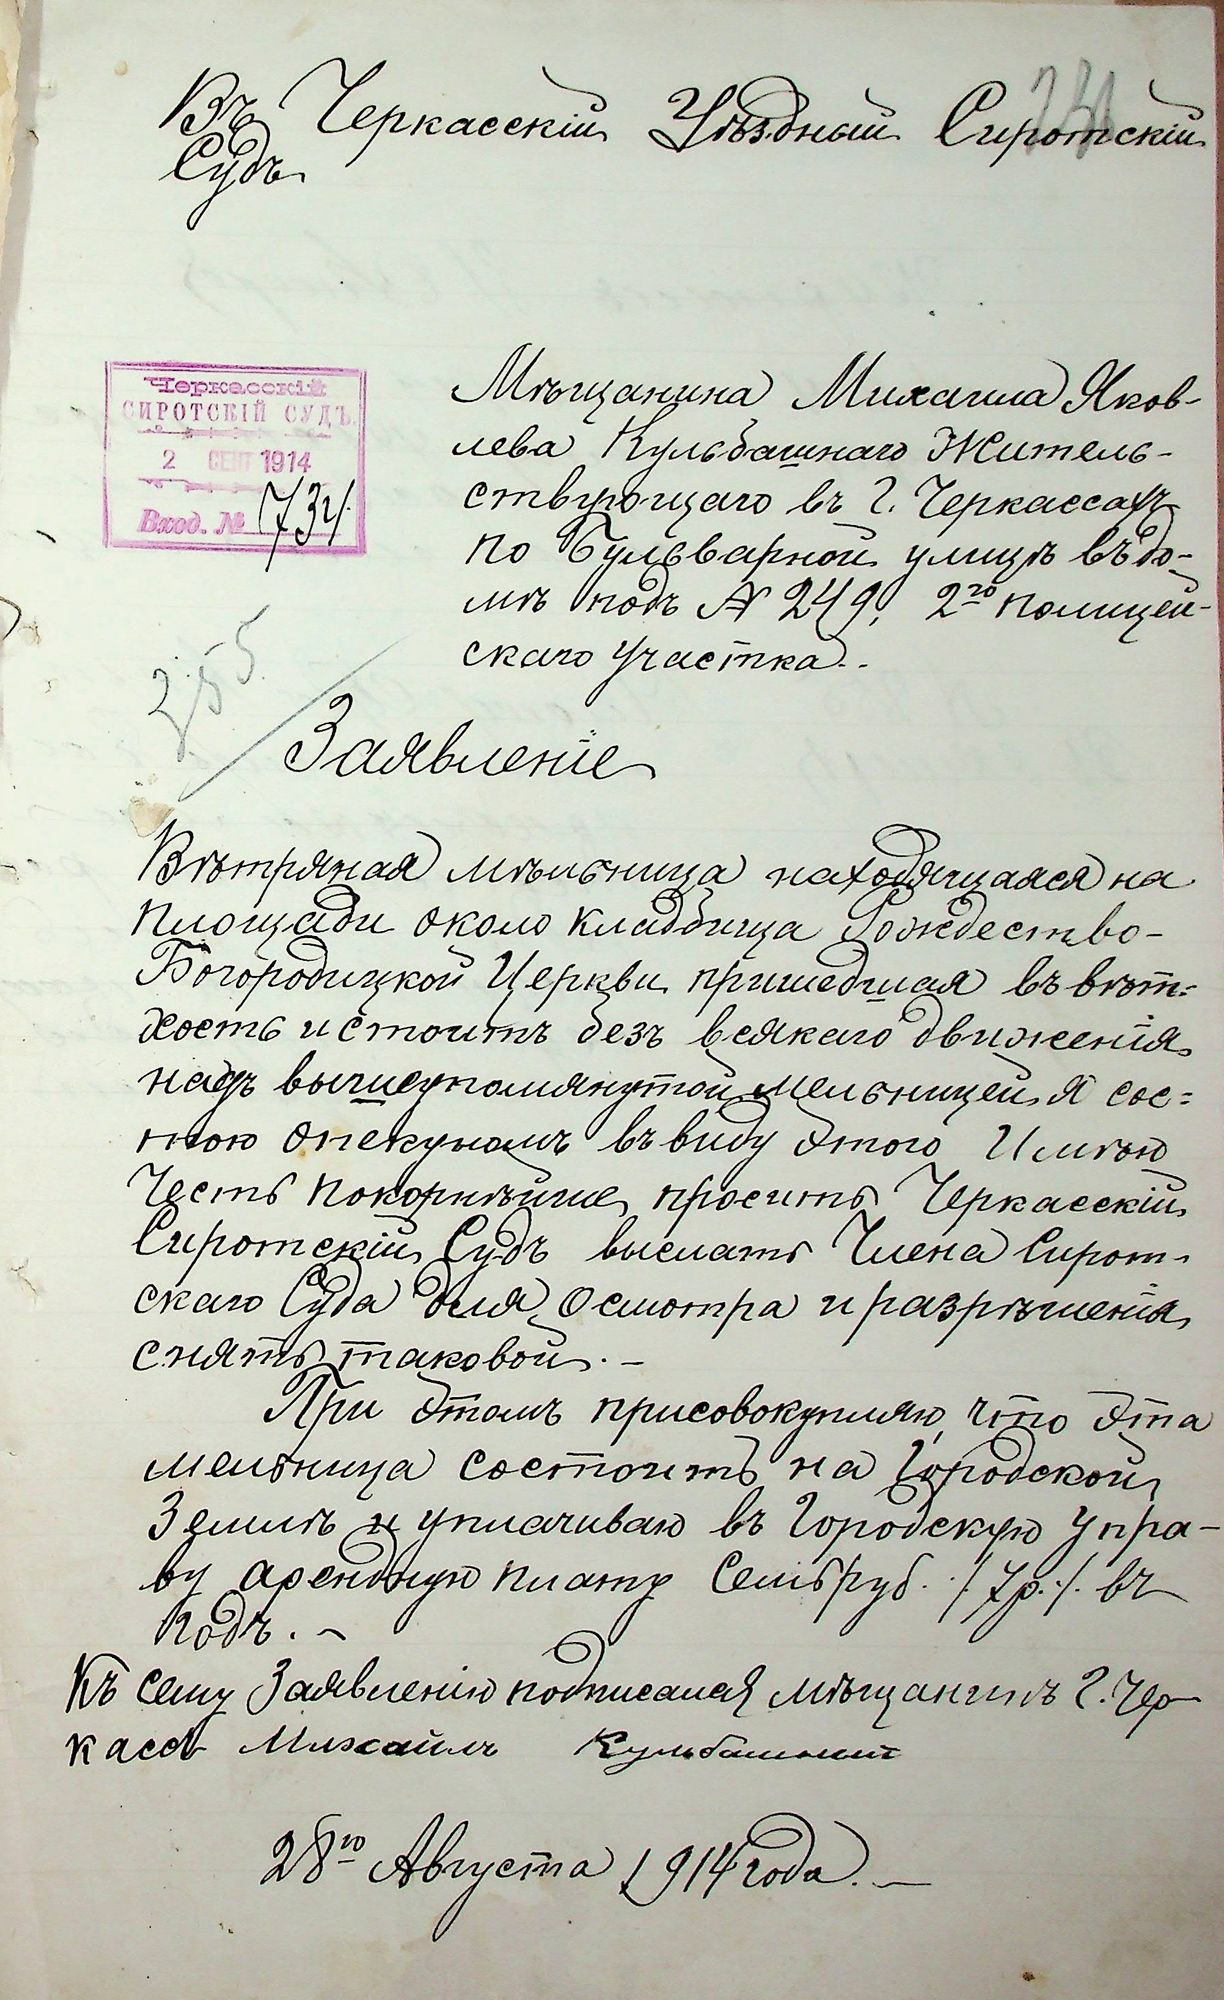 Въ Черкасскій Уѣздный Сиротскій
Судъ
Черкасскій
СИРОТСКІЙ СУДЪ
2 СЕНТ 1914
Вход. №
Мѣщанина Михаила Яков-
лева Кульбашнаго Житель-
ствующаго въ г. Черкассахъ
по Бульварной улицѣ въ до-
мѣ подъ № 249, 2го полицей-
скаго участка.
255
Заявленіе
Вѣтряная мѣльница находящаяся на
площади около кладбища Рождество-
Богородицкой Церкви пришедшая въ вѣт-
хость и стоитъ безъ всякаго движенія
надъ вышеупомянутой мельницей я сос-
тою опекуномъ въ виду этого Имѣю
Честь покорнѣйше просить Черкасскій
Сиротскій Судъ выслать Члена Сирот-
скаго Суда для осмотра и разрѣшенія
снять таковой. —
При этомъ присовокупляю, что эта
мельница состоитъ на Городской
Землѣ и уплачиваю въ Городскую Упра-
ву арендную плату Семь руб. /7р./ въ
годъ. —
Къ сему Заявленію подписался мѣщанинъ г. Чер
кассъ Михаилъ Кульбашный
28го Августа 1914 года. —